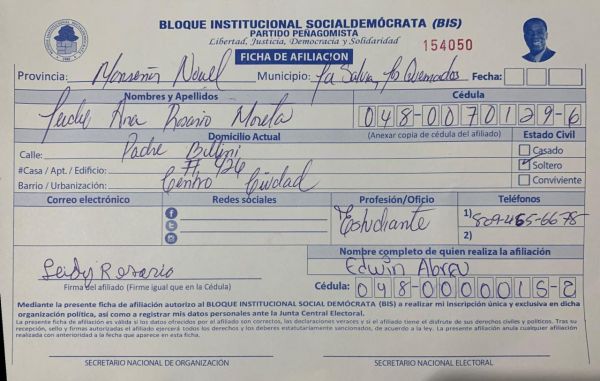 BLOQUE INSTITUCIONAL SOCIALDEMÓCRATA (BIS)
PARTIDO PEÑAGOMISTA
Libertad, Justicia, Democracia y Solidaridad
154050
FICHA DE AFILIACIÓN
Provincia: Monseñor Nouel Municipio: La Salvia, Los Quemados Fecha:
Nombres y Apellidos Cédula
Leidy Ana Rosario Moreta 048-0070129-6
Domicilio Actual (Anexar copia de cédula del afiliado) Estado Civil
Calle: Padre Billini Casado
#Casa / Apt. / Edificio: # 426 Soltero
Barrio / Urbanización: Centro Ciudad Conviviente
Correo electrónico Redes sociales Profesión/Oficio Teléfonos
Estudiante 1) 809-465-6678
2)
Nombre completo de quien realiza la afiliación
Leidy Rosario Edwin Abreu
Firma del afiliado (Firme igual que en la Cédula) Cédula: 048-0000015-2
Mediante la presente ficha de afiliación autorizo al BLOQUE INSTITUCIONAL SOCIAL DEMÓCRATA (BIS) a realizar mi inscripción única y exclusiva en dicha
organización política, así como a registrar mis datos personales ante la Junta Central Electoral.
La presente ficha de afiliación es válida si los datos ofrecidos por el afiliado son correctos, las declaraciones veraces y si el afiliado tiene el disfrute de sus derechos civiles y políticos. Tras su
recepción, sello y firmas autorizadas el afiliado ejercerá todos los derechos y los deberes estatutariamente sancionados, de acuerdo a la ley. La presente afiliación anula cualquier afiliación
realizada con anterioridad a la fecha que aparece en esta ficha.
SECRETARIO NACIONAL DE ORGANIZACIÓN SECRETARIO NACIONAL ELECTORAL